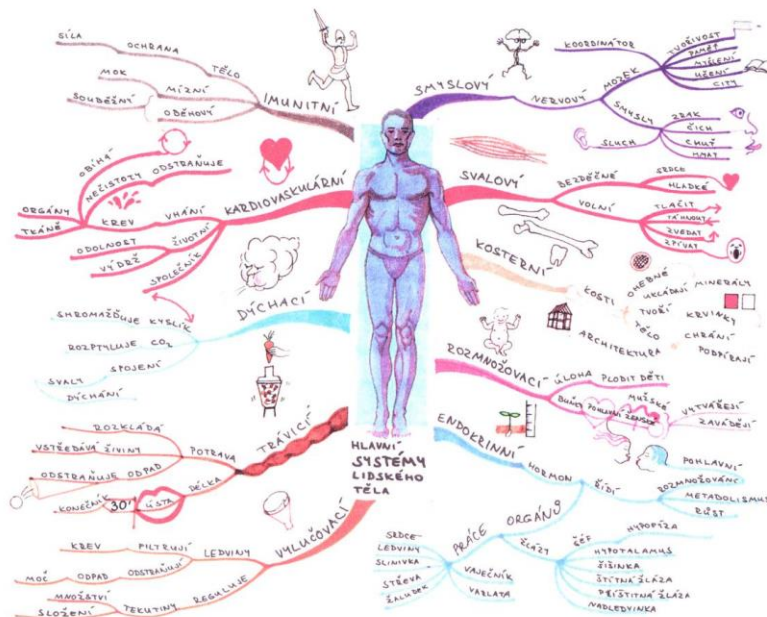 HLAVNÍ
SYSTÉMY
LIDSKÉHO
TĚLA
IMUNITNÍ
TĚLO
OCHRANA
SÍLA
MÍZNÍ
MOK
OBĚHOVÝ
SOUDĚŽNÝ
KARDIOVASKULÁRNÍ
VHÁNÍ
KREV
OBÍHÁ
NEČISTOTY
ODSTRAŇUJE
ORGÁNY
TKÁNĚ
ŽIVOTNÍ
ODOLNOST
VÝDRŽ
SPOLEČNÍK
DÝCHACÍ
SHROMAŽĎUJE KYSLÍK
ROZPTYLUJE CO₂
SPOJENÍ
SVALY
DÝCHÁNÍ
TRÁVICÍ
POTRAVA
ROZKLÁDÁ
VSTŘEBÁVÁ ŽIVINY
ODSTRAŇUJE ODPAD
DÉLKA
ÚSTA
30'
KONEČNÍK
VYLUČOVACÍ
LEDVINY
FILTRUJÍ
KREV
ODSTRAŇUJÍ
ODPAD
MOČ
REGULUJE
TEKUTINY
MNOŽSTVÍ
SLOŽENÍ
SMYSLOVÝ
NERVOVÝ
MOZEK
KOORDINÁTOR
TVOŘIVOST
PAMĚŤ
MYŠLENÍ
UČENÍ
CITY
SMYSLY
ZRAK
ČICH
CHUŤ
HMAT
SLUCH
SVALOVÝ
BEZDĚČNÉ
SRDCE
HLADKÉ
VOLNÍ
TLAČIT
TÁHNOUT
ZVEDAT
ZPÍVAT
KOSTERNÍ
KOSTI
OHEBNÉ
UKLÁDAJÍ
MINERÁLY
TVOŘÍ
KRVINKY
TĚLO
CHRÁNÍ
PODPÍRAJÍ
ARCHITEKTURA
ROZMNOŽOVACÍ
ÚLOHA
PLODIT DĚTI
BUŇKY
POHLAVNÍ
MUŽSKÉ
ŽENSKÉ
VYTVÁŘEJÍ
ZAVÁDĚJÍ
ENDOKRINNÍ
HORMON
ŘÍDÍ
POHLAVNÍ
ROZMNOŽOVÁNÍ
METABOLISMUS
RŮST
ORGÁNŮ
PRÁCE
SRDCE
LEDVINY
SLINIVKA
STŘEVA
ŽALUDEK
VAJEČNÍK
VARLATA
ŽLÁZY
ŠÉF
HYPOFÝZA
HYPOTALAMUS
ŠIŠINKA
ŠTÍTNÁ ŽLÁZA
PŘÍŠTÍTNÁ ŽLÁZA
NADLEDVINKA